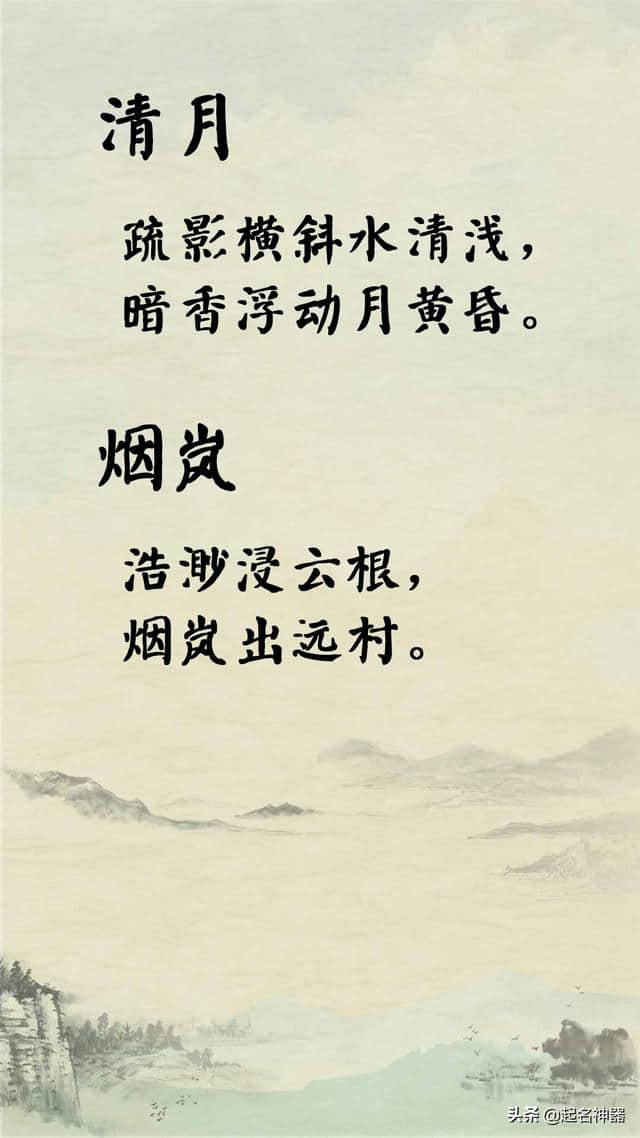 清月
疏影横斜水清浅，
暗香浮动月黄昏。
烟岚
浩渺浸云根，
烟岚出远村。
头条 @起名神器